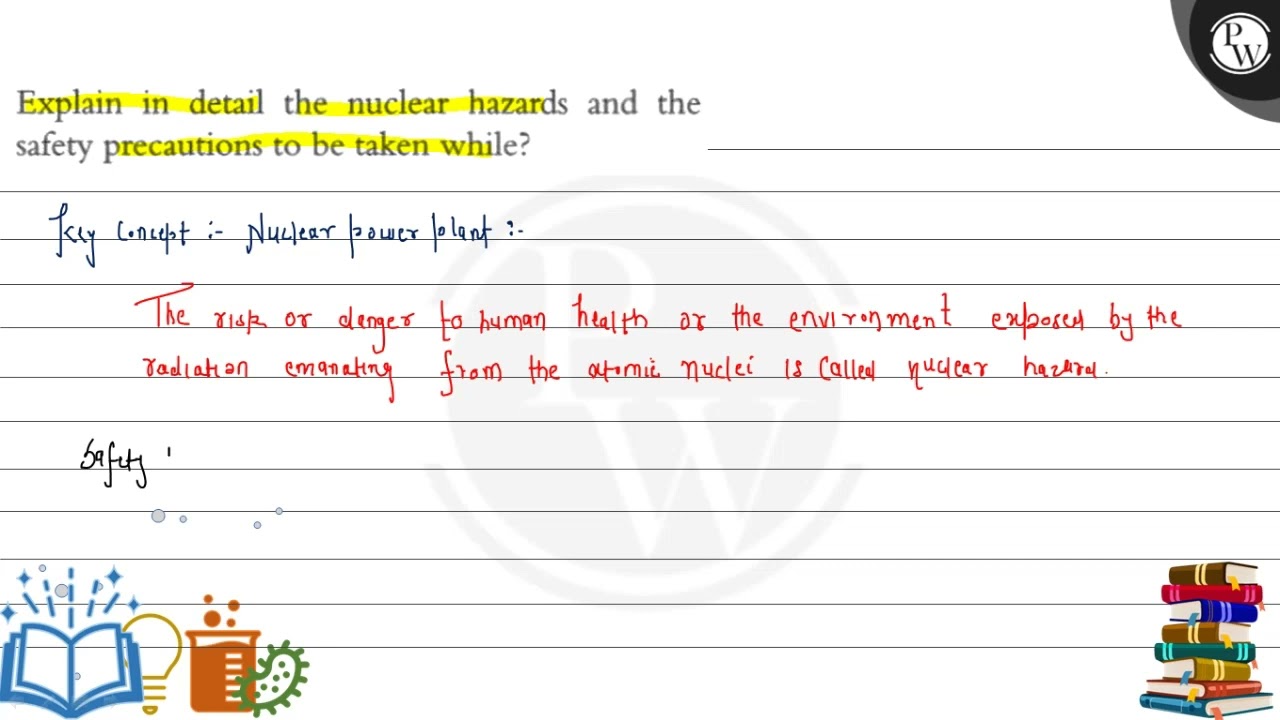 PW
Explain in detail the nuclear hazards and the
safety precautions to be taken while?
Key Concept :- Nuclear power plant :-
The risk or danger to human health or the environment exposed by the
radiation emanating from the atomic nuclei is called nuclear hazard.
Safety
PW